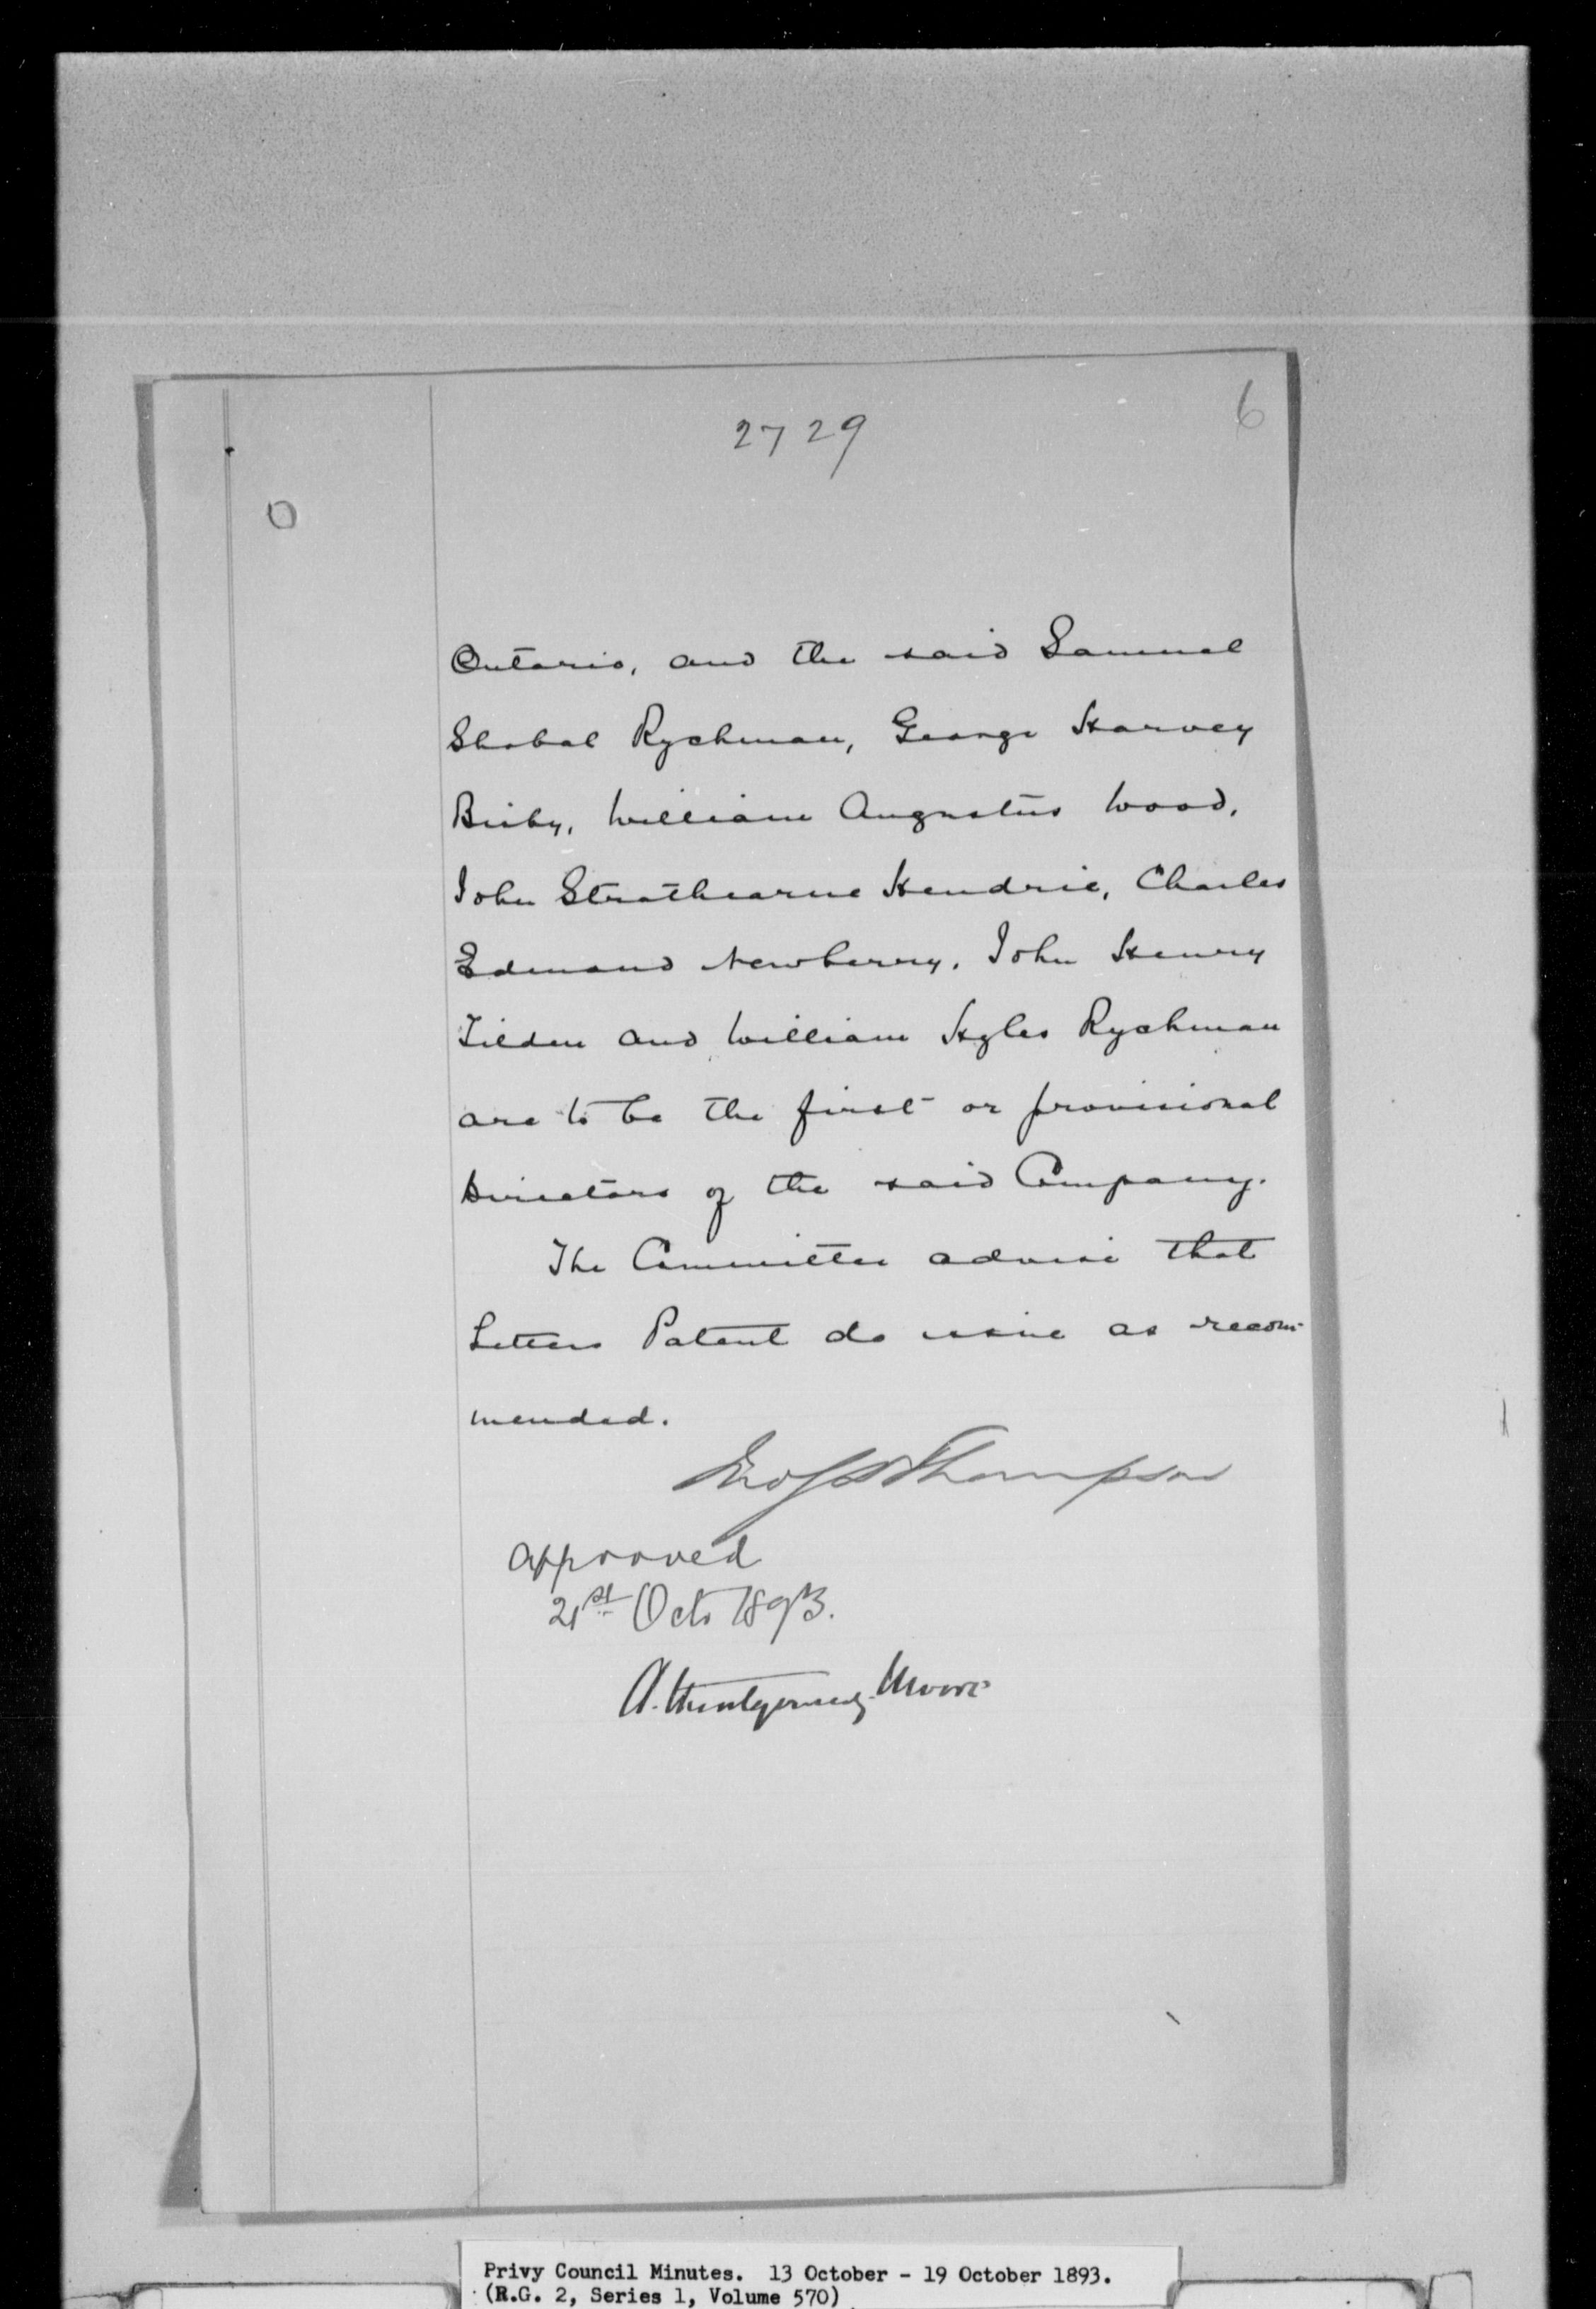 2729
6
0
Ontario, and the said Samuel
Shobal Ryckman, George Harvey
Bisby, William Augustus Wood,
John Strathearne Hendrie, Charles
Edmund Newberry, John Henry
Tilden and William Hyles Ryckman
are to be the first or provisional
Directors of the said Company.
The Committee advise that
Letters Patent do issue as recom-
mended.
Jno S D Thompson
approved
21st Oct. 1893.
A. Montgomery Moore
Privy Council Minutes. 13 October - 19 October 1893.
(R.G. 2, Series 1, Volume 570)